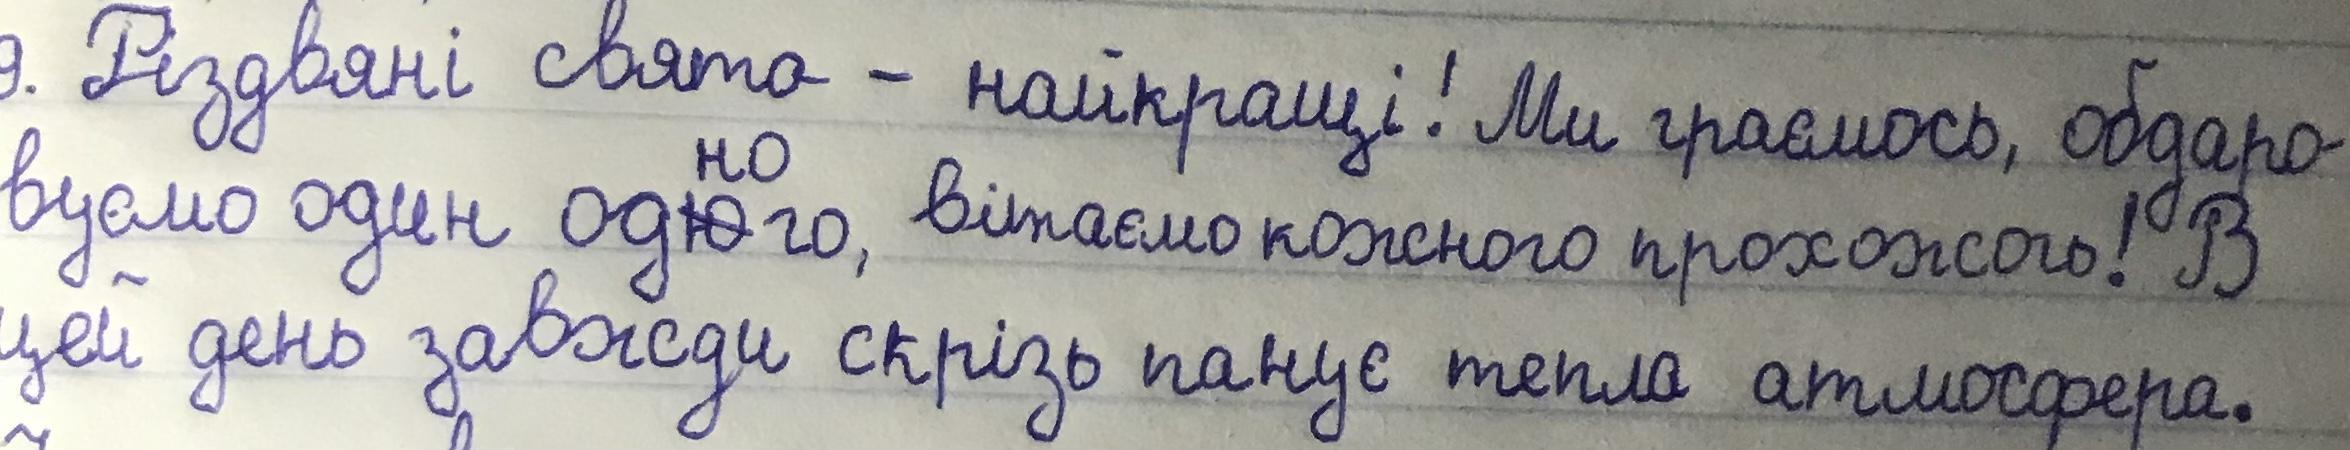 9. Різдвяні свята - найкращі! Ми граємось, обдаро-
вуємо один одного, вітаємо кожного прохожого! В
цей день завжди скрізь панує тепла атмосфера.